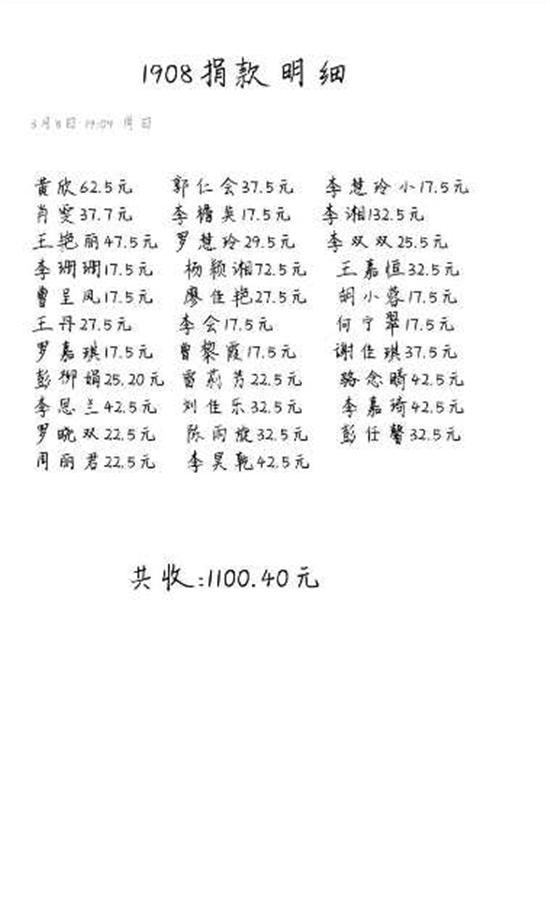 1908捐款明细
3月8日 19:09 周日
黄欣62.5元 郭仁会37.5元 李慧玲小17.5元
肖雯37.7元 李檐英17.5元 李湘132.5元
王艳丽47.5元 罗慧玲29.5元 李双双25.5元
李珊珊17.5元 杨颖湘72.5元 王嘉恒32.5元
曹呈凤17.5元 廖佳艳27.5元 胡小蓉17.5元
王丹27.5元 李会17.5元 何宁翠17.5元
罗嘉琪17.5元 曹黎霞17.5元 谢佳琪37.5元
彭柳娟25.20元 雷莉芳22.5元 骆念晴42.5元
李思兰42.5元 刘佳乐32.5元 李嘉琦42.5元
罗晓双22.5元 陈雨旋32.5元 彭仕馨32.5元
周丽君22.5元 李昊乾42.5元
共收:1100.40元